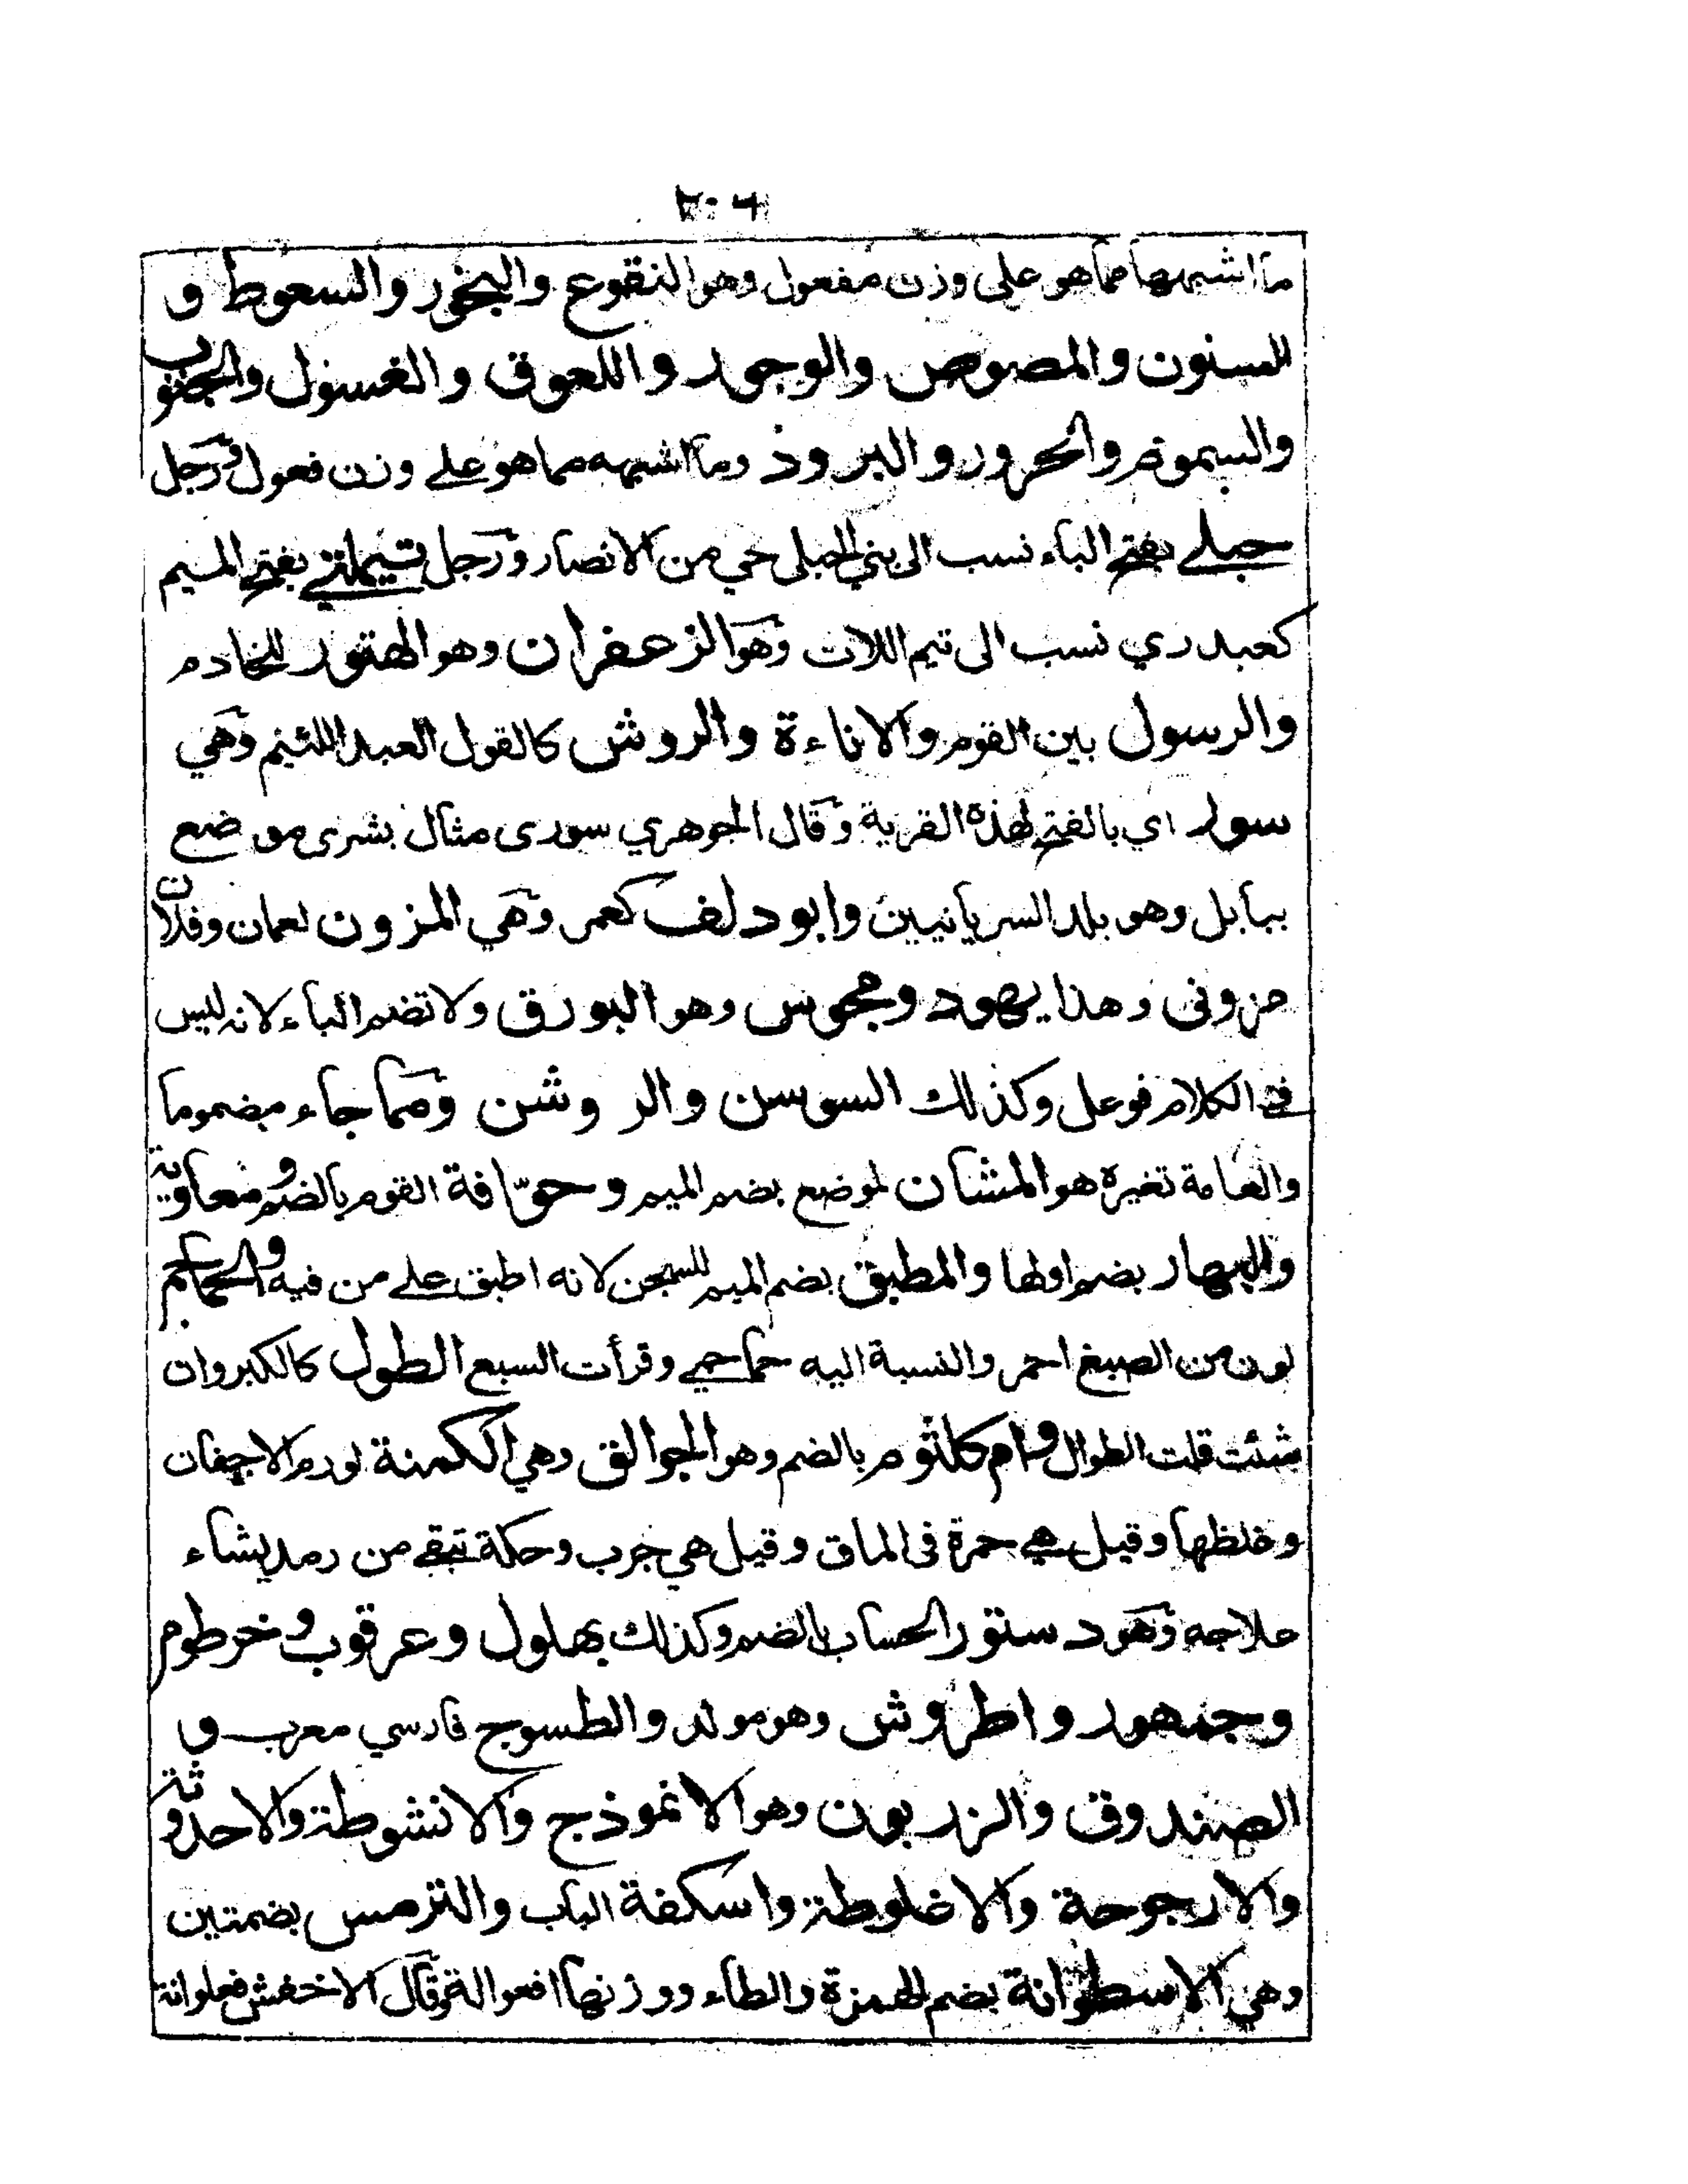 ٢٠٦
ما اشبهها مما هو على وزن مفعول وهو النقوع والبخور والسعوط و
السنون والمصوص والوجور واللعوق والغسول والحضوب
والسموم والحرور والبرود وما اشبهه مما هو على وزن فعول ورجل
حبلي بفتح الباء نسب الى بني الحبلى حي من الانصار ورجل تيملي بفتح الميم
كعبدري نسب الى تيم اللات وهو الزعفران وهو الهتور للخادم
والرسول بين القوم والاناءة والروش كالقول العبد اللئيم وهي
سورا اي بالفتح لهذه القرية وقال الجوهري سورى مثال بشرى موضع
ببابل وهو بلد السريانيين وابو دلف كعمر وهي المزون لعمان وفلان
مزونى وهذا يهود ومجوس وهو البورق ولا تضم الباء لانه ليس
في الكلام فوعل وكذلك السوسن والروشن ومما جاء مضموما
والعامة تغيره هو المشان لموضع بضم الميم وحوّافة القوم بالضم ومعاوية
والبهار بضم اولها والمطبق بضم الميم للسجن لانه اطبق على من فيه والحماحم
لون من الصبغ احمر والنسبة اليه حماحمي وقرأت السبع الطول كالكبر وان
شئت قلت الطوال وام كلثوم بالضم وهو الجوالق وهي الكمنة لورم الاجفان
وغلظها وقيل هي حمرة في الماق وقيل هي جرب وحكة تبقى من رمد يشاء
علاجه وهو دستور الحساب بالضم وكذلك بهلول وعرقوب وخرطوم
وجمهور واطروش وهو مولد والطسوج فارسي معرب و
الصندوق والزربون وهو الانموذج والانشوطة والاحدوثة
والارجوحة والاغلوطة واسكفة الباب والترمس بضمتين
وهي الاسطوانة بضم الهمزة والطاء ووزنها افعوالة وقال الاخفش فعلوانة